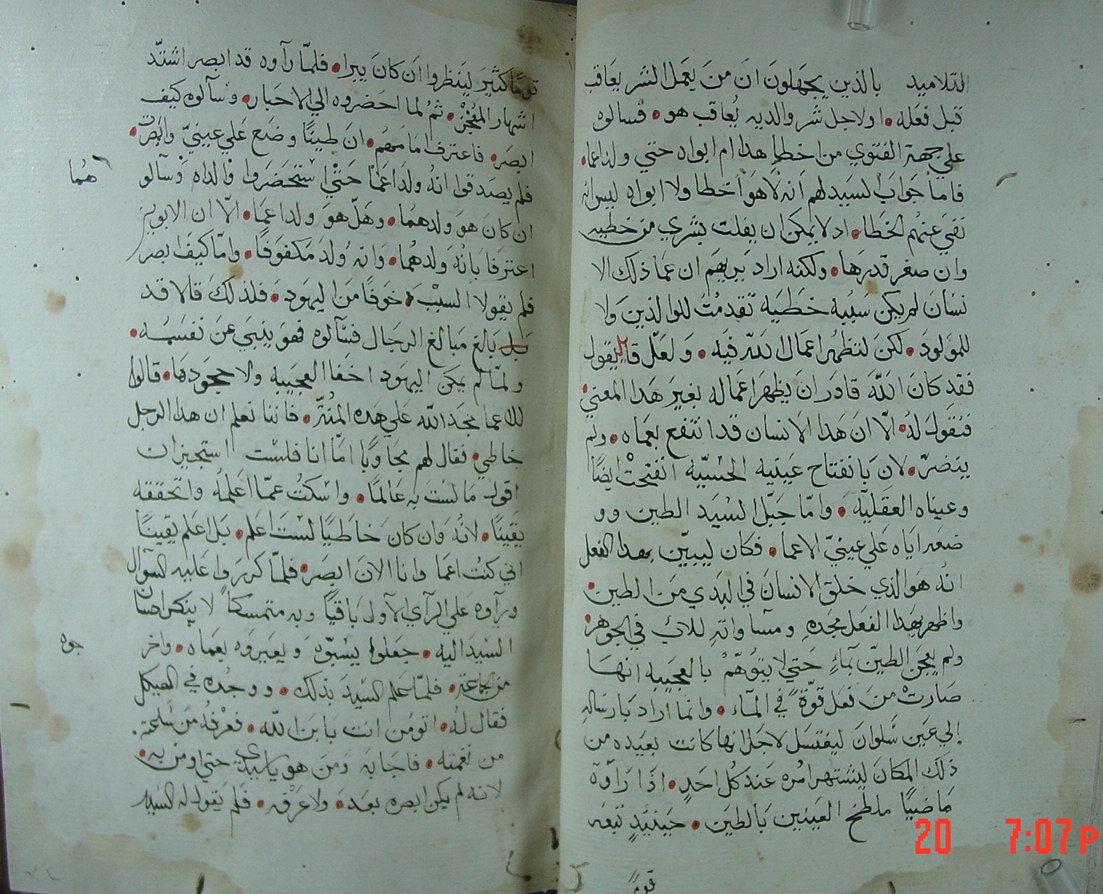 التلاميد بالذين يجهلون ان من يعمل الشر يعاقب
قبل فعله • او لاجل شر والديه يُعاقب هو • فسالوه
علي جهة الفتوي من اخطا هدا ام ابواه حتي ولد اعما •
فاما جواب السيد لهم انه لا هو اخطا ولا ابواه ليس انه
نفي عنهم الخطا • اد لا يمكن ان يفلت بشري من خطيه
وان صغر قدرها • ولكنه اراد يريهم ان عما ذلك الا
نسان لم يكن سببه خطيه تقدمت للوالدين ولا
للمولود • لكن لتظهر اعمال الله فيه • ولعل قايلا يقول
فقد كان الله قادر ان يظهر اعماله بغير هدا المعني
فنقول له • الا ان هدا الانسان قد انتفع بعماه • ولم
ينضر • لان بانفتاح عينيه الحسيه انفتحت ايضًا
وعيناه العقلية • واما جبل السيد الطين وو
ضعه اياه علي عيني الاعما • فكان ليبين بهدا الفعل
انه هو الذي خلق الانسان في البدي من الطين •
واظهر بهدا الفعل مجده ومساواته للاب في الجوهر •
ولم يعجن الطين بماء حتي لا يتوهم بالعجيبه انها
صارت من فعل قوة في الماء • وانما اراد بارساله
الي عين سلوان ليغتسل لاجل انها كانت بعيده من
ذلك المكان ليشتهر امره عند كل احد • اذا راوه
ماضيًا ملطخ العينين بالطين • حينيدٍ تبعه
قومًا
قومًا كثير لينظروا ان كان يبرا • فلما رآوه قد ابصر اشتد
اشهار المفخر • ثم لما احضروه الي الاحبار • وسآلوه كيف
ابصر • فاعترف امامهم • ان طينًا وضع علي عيني وابصرت •
فلم يصدقوا انه ولد اعما حتي استحضروا والداه وسآلو
هما
ان كان هو ولدهما • وهل هو ولد اعما • الا ان الابوين
اعترفا بانه ولدهما • وانه ولد مكفوفًا • واما كيف ابصر
فلم يقولا السبب • خوفًا من اليهود • فلذلك قالا قد
بلغ مبالغ الرجال فسآلوه فهو ينبي عن نفسه •
ولما لم يمكن اليهود اخفا العجيبه ولا جحودها • قالوا
للاعما مجد الله علي هده المنة • فاننا نعلم ان هدا الرجل
خاطي • فقال لهم مجاوبًا اما انا فلست استجيز ان
اقول ما لست به عالمًا • واسكت عما اعلمه واتحققه
يقينًا • لانه وان كان خاطيًا لست اعلم • بل اعلم يقينًا
اني كنت اعما وانا الان ابصر • فلما كرروا عليه السوال
وراوه علي الرآي الاول باقيًا وبه متمسكًا لا ينكر احسان
السيد اليه • جعلوا يسبوه ويعيروه بعماه • واخر
جوه
من الجماعه • فلما علم السيد بذلك • ووجده في الهيكل
فقال له • اتومن انت بابن الله • فعرفه من
من نغمته • فاجابه ومن هو يا سيدي حتي اومن به •
لانه لم يكن ابصره بعد • ولا عرفه • فلم يقول له السيد
20 7:07 P